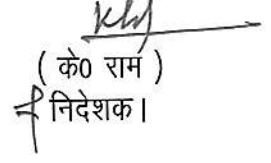 ( के0 राम )
निदेशक।